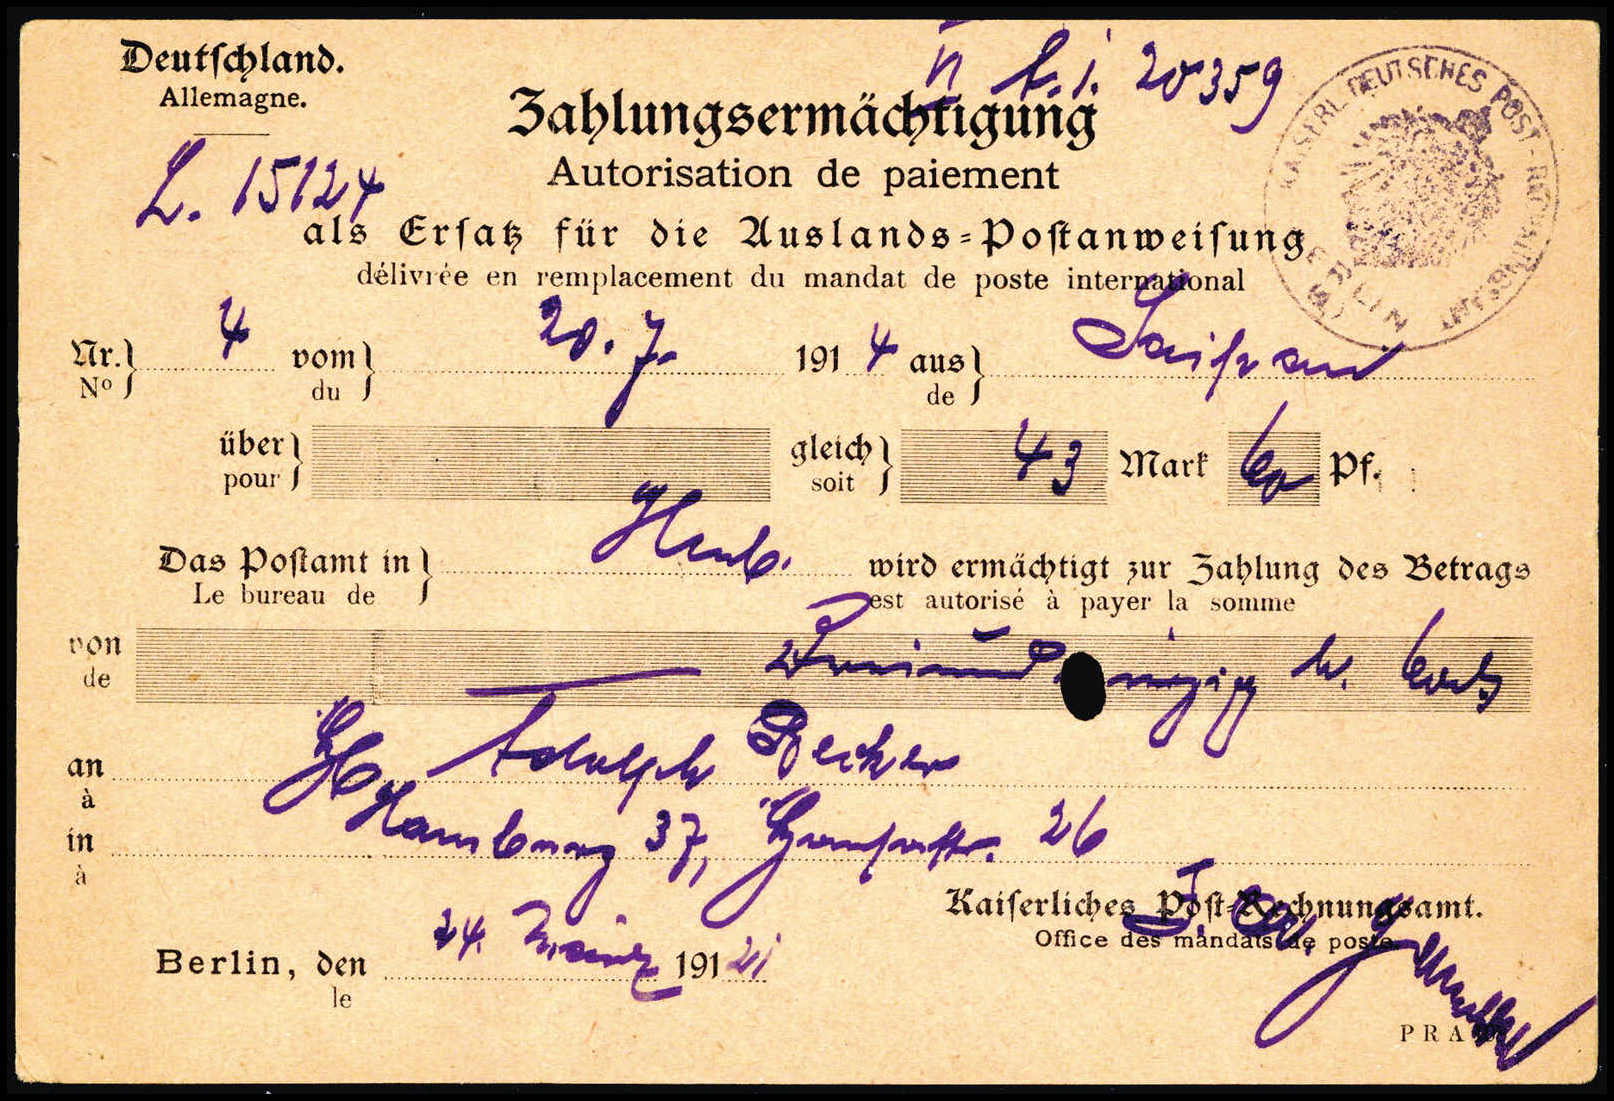 Deutschland.
Allemagne.
n b. i. 20359
KAISERL. DEUTSCHES POST-RECHNUNGSAMT
BERLIN
Zahlungsermächtigung
Autorisation de paiement
L. 15124
als Ersatz für die Auslands-Postanweisung
délivrée en remplacement du mandat de poste international
Nr. 4 vom 20. 7. 1914 aus Saipan
No du de
über gleich 43 Mark 60 Pf.
pour soit
Das Postamt in Hmb. wird ermächtigt zur Zahlung des Betrags
Le bureau de est autorisé à payer la somme
von
de
an Adolph Becker
à
in Hamburg 37, Hansastr. 26
à
Kaiserliches Post-Rechnungsamt.
Office des mandats de poste.
Berlin, den 24. März 191
le
P R A